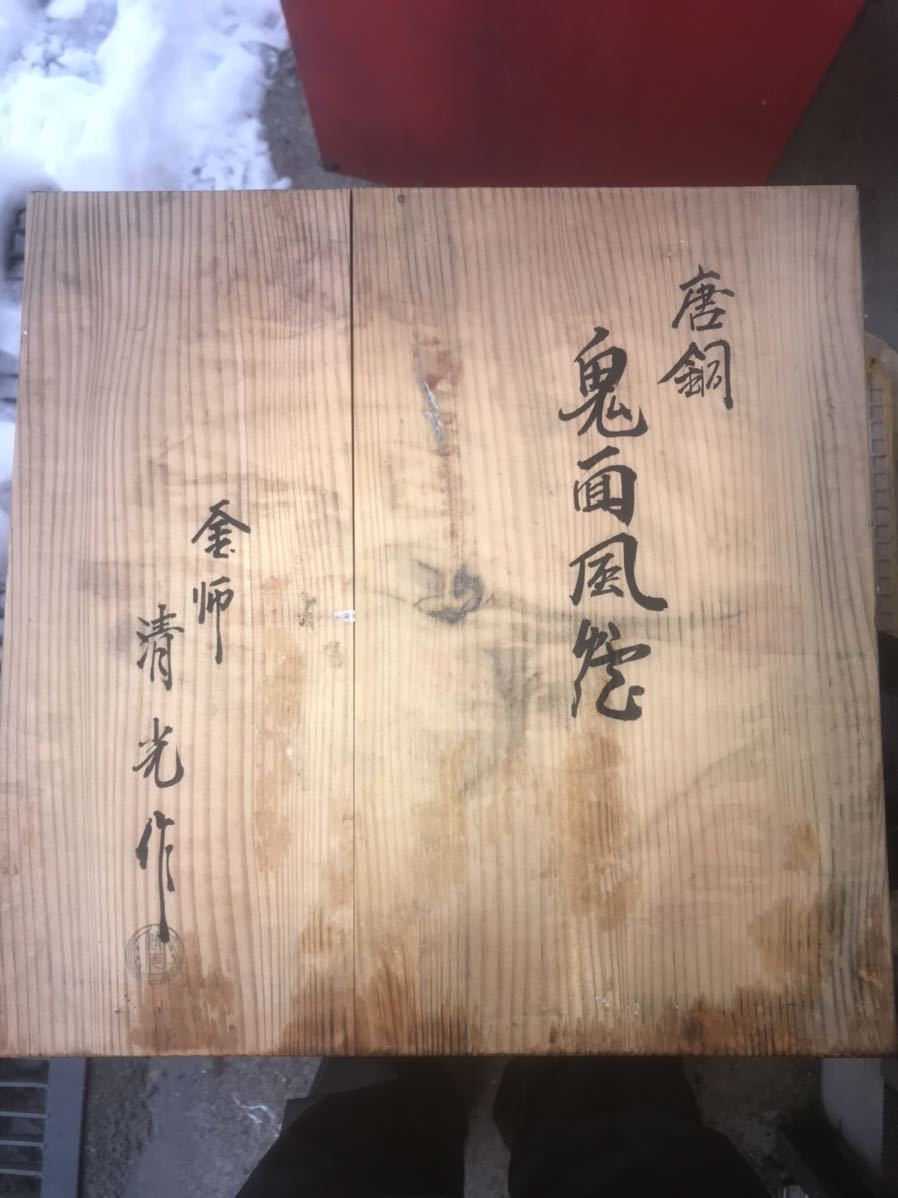 唐銅
鬼面風炉
釜師
清光作